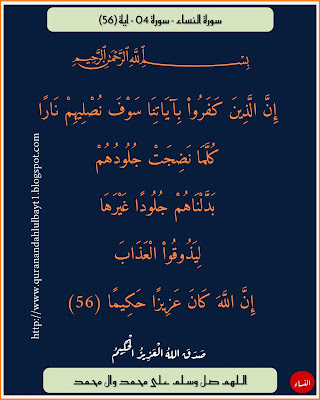 سورة النساء - سورة 04 - اية (56)
بِسْمِ اللَّهِ الرَّحْمَنِ الرَّحِيمِ
إِنَّ الَّذِينَ كَفَرُواْ بِآيَاتِنَا سَوْفَ نُصْلِيهِمْ نَارًا
كُلَّمَا نَضِجَتْ جُلُودُهُمْ
بَدَّلْنَاهُمْ جُلُودًا غَيْرَهَا
لِيَذُوقُواْ الْعَذَابَ
إِنَّ اللَّهَ كَانَ عَزِيزًا حَكِيمًا (56)
صَدَقَ اللهُ الْعَزِيزُ الْحَكِيمُ
اللهم صل وسلم على محمد وال محمد
النساء
http://www.quranandahlulbayt1.blogspot.com